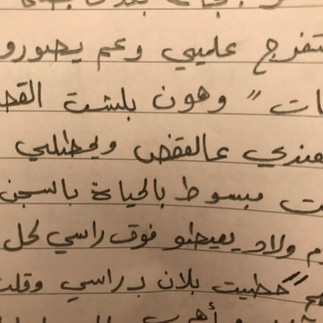 تفرج علييي وعم يصورو
ات" وهون بلشت القص
هندي عالقفص ويحطلي
ت مبسوط بالحياة بالسجن
م ولاد يعيطو فوق راسي لحل
هم "حطيت بلان براسي وقلت